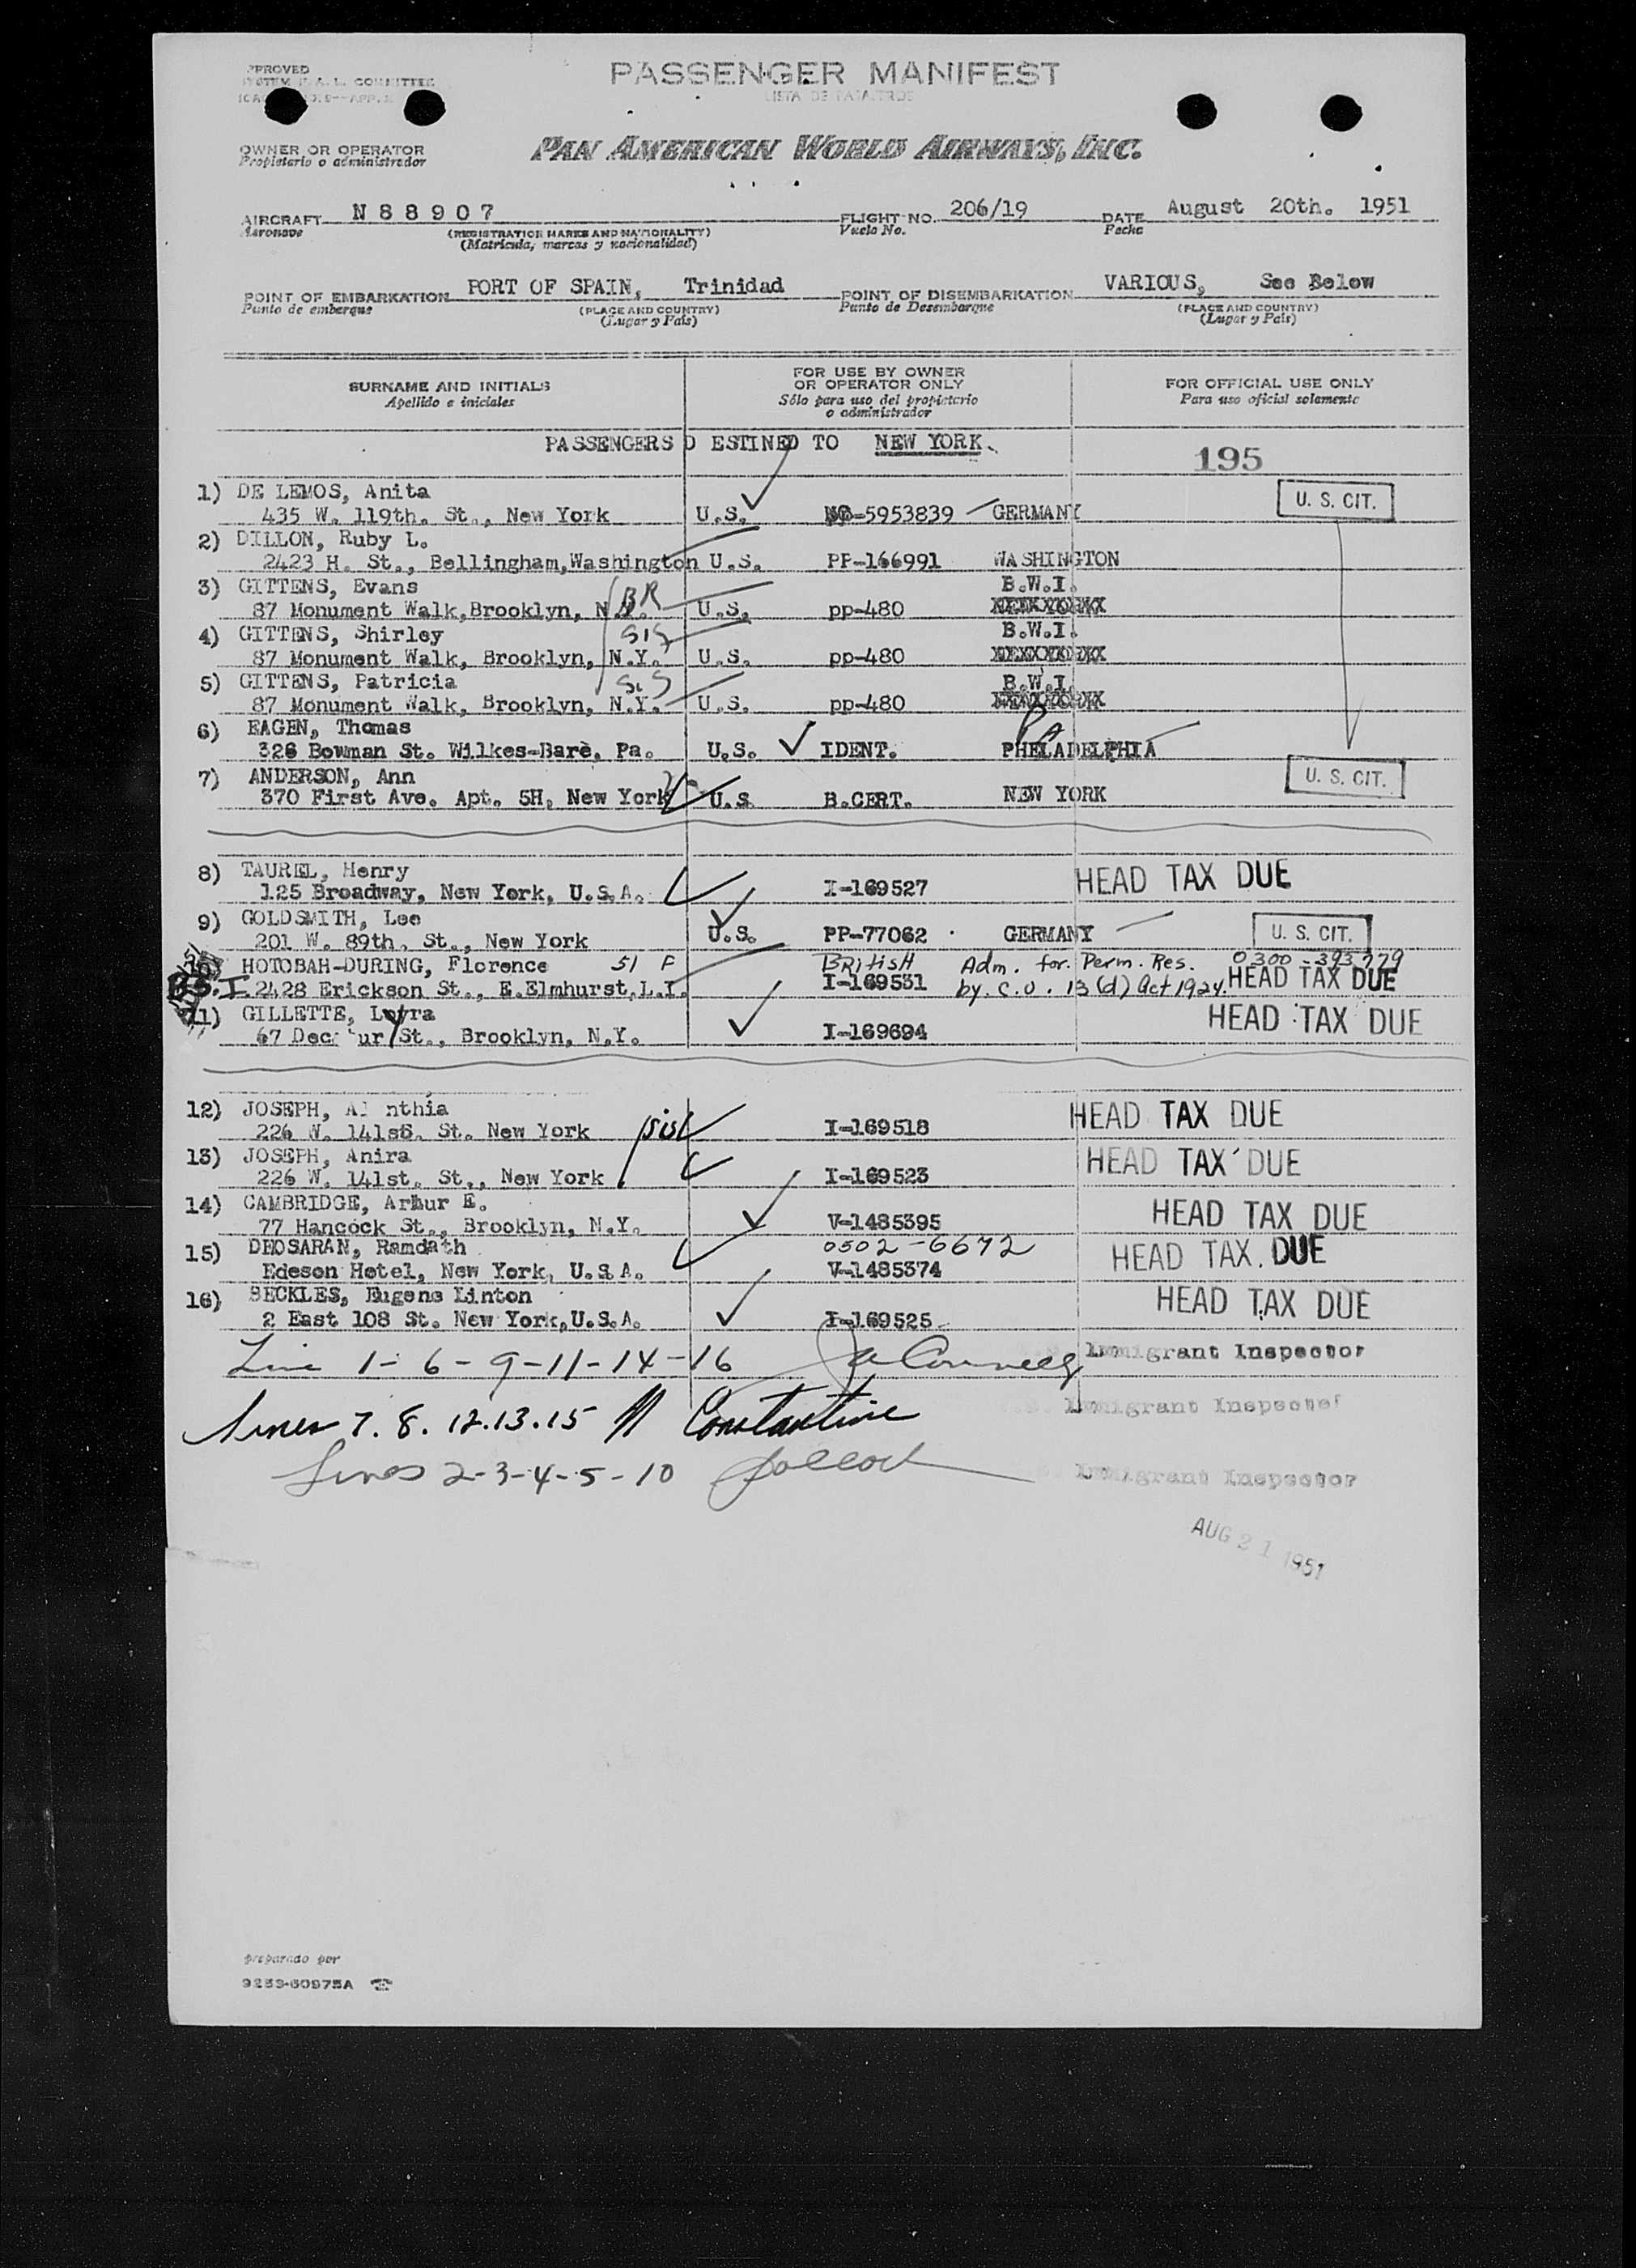 PPROVED
PASSENGER MANIFEST
OWNER OR OPERATOR
Propietario o administrador
PAN AMERICAN WORLD AIRWAYS, INC.
AIRCRAFT N 8 8 9 0 7 FLIGHT NO. 206/19 DATE August 20th. 1951
Aeronave (REGISTRATION MARKS AND NATIONALITY) Vuelo No. Fecha
(Matrícula, marcas y nacionalidad)
POINT OF EMBARKATION PORT OF SPAIN, Trinidad POINT OF DISEMBARKATION VARIOUS, See Below
Punto de embarque (PLACE AND COUNTRY) Punto de Desembarque (PLACE AND COUNTRY)
(Lugar y País) (Lugar y País)
SURNAME AND INITIALS FOR USE BY OWNER OR OPERATOR ONLY FOR OFFICIAL USE ONLY
Apellido e iniciales Sólo para uso del propietario o administrador Para uso oficial solamente
PASSENGERS D ESTINED TO NEW YORK.
195
1) DE LEMOS, Anita
435 W. 119th. St., New York U.S. -5953839 GERMANY U. S. CIT.
2) DILLON, Ruby L.
2423 H. St., Bellingham,Washington U.S. PP-166991 WASHINGTON
3) GITTENS, Evans B.W.I.
87 Monument Walk,Brooklyn, N.Y. BR U.S. pp-480
4) GITTENS, Shirley sis B.W.I.
87 Monument Walk, Brooklyn, N.Y. U.S. pp-480
5) GITTENS, Patricia sis B.W.I.
87 Monument Walk, Brooklyn, N.Y. U.S. pp-480
6) EAGEN, Thomas
326 Bowman St. Wilkes-Barè, Pa. U.S. IDENT. PHELADELPHIA
7) ANDERSON, Ann U. S. CIT.
370 First Ave. Apt. 5H, New York U.S. B.CERT. NEW YORK
8) TAUREL, Henry HEAD TAX DUE
125 Broadway, New York, U.S.A. I-169527
9) GOLDSMITH, Lee
201 W. 89th. St., New York U.S. PP-77062 GERMANY U. S. CIT.
HOTOBAH-DURING, Florence 51 F BRitisH Adm. for. Perm. Res. 0300-393779
B.S.I. 2428 Erickson St., E.Elmhurst,L.I. I-169531 by. C.O. 13(d) Act 1924. HEAD TAX DUE
11) GILLETTE, HEAD TAX DUE
67 St., Brooklyn, N.Y. I-169694
12) JOSEPH, HEAD TAX DUE
226 W. 141st. St. New York sis I-169518
13) JOSEPH, Anira HEAD TAX DUE
226 W. 141st. St., New York I-169523
14) CAMBRIDGE, Arthur E. HEAD TAX DUE
77 Hancock St., Brooklyn, N.Y. V-1485395
15) DEOSARAN, Ramdath 0502-6672 HEAD TAX DUE
Edeson Hotel, New York, U.S.A. V-1485374
16) BECKLES, Eugene Linton HEAD TAX DUE
2 East 108 St. New York,U.S.A. I-169525
Line 1-6-9-11-14-16 Immigrant Inspector
Lines 7.8.12.13.15 Constantine Immigrant Inspector
Lines 2-3-4-5-10 Immigrant Inspector
AUG 21 1951
preparado por
9253-60975A